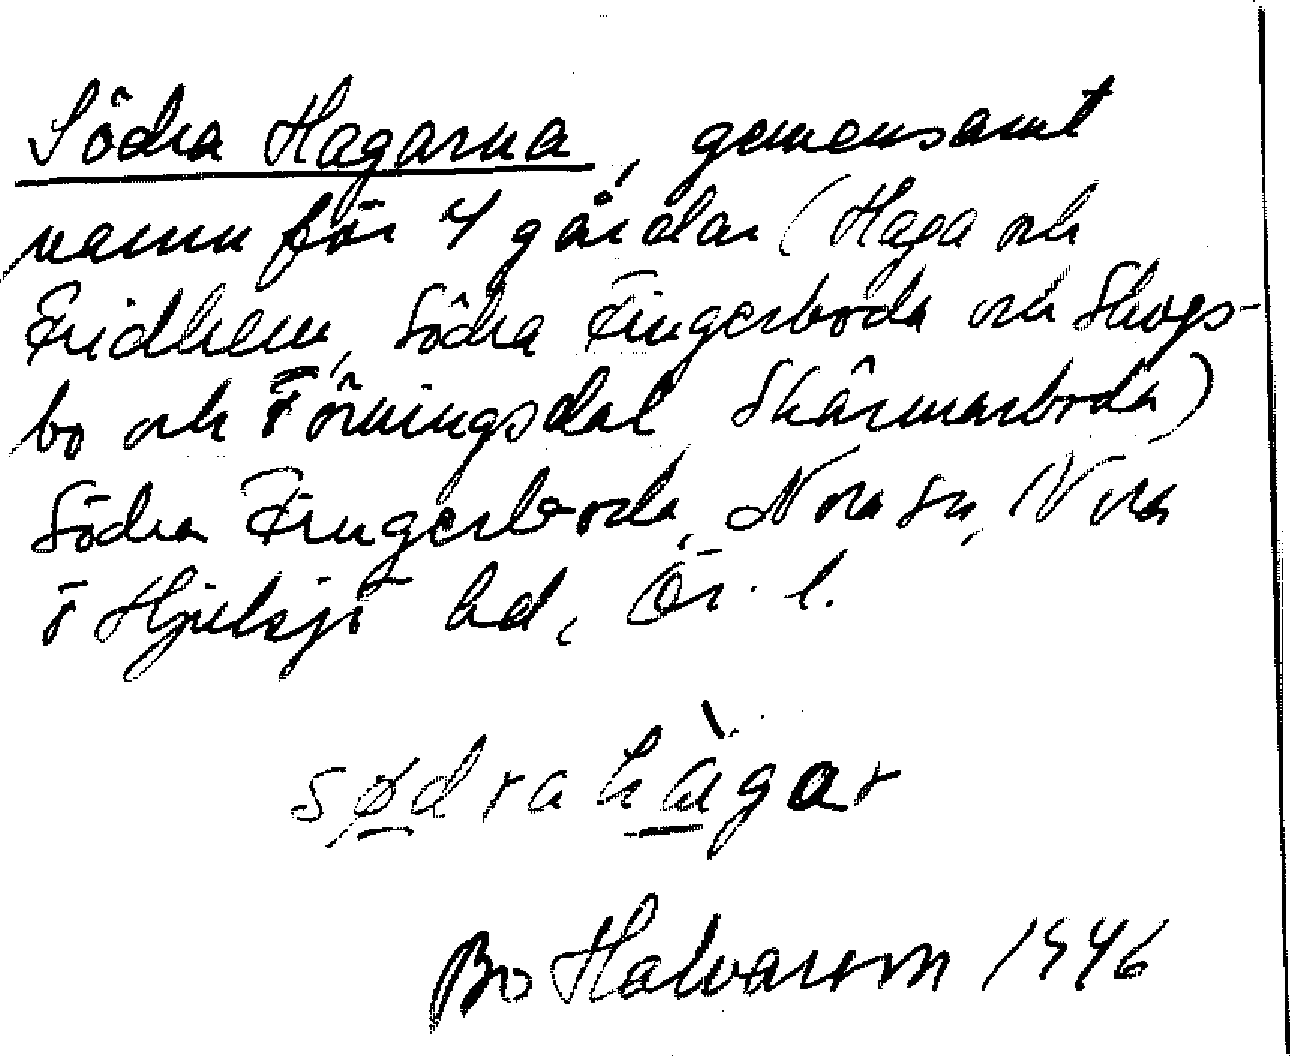 Södra Hagarna, gemensamt
namn för 4 gårdar (Haga och
Fridhem, Södra Fingerboda och Skogs-
bo och Törningsdal Skärmarboda)
Södra Fingerboda, Nora sn, Nora
o Hjulsjö hd, Ör. l.
sødra hàgar
Bo Halvarson 1946